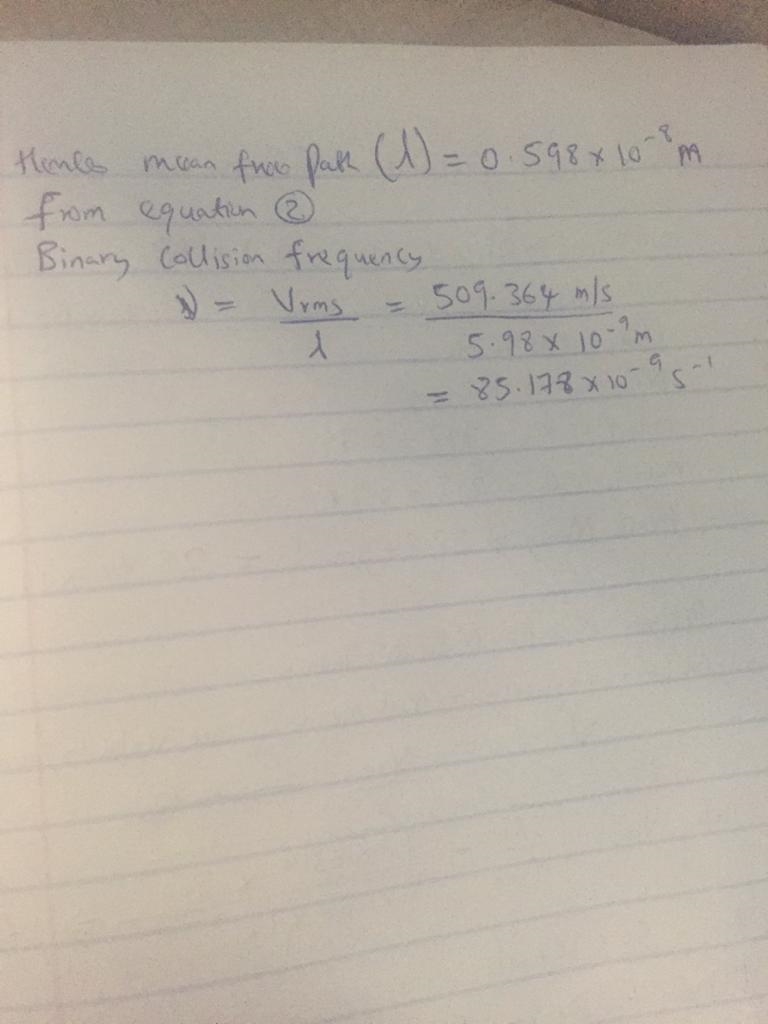 Hence mean free Path (λ) = 0.598 × 10⁻⁸ m
from equation ②
Binary Collision frequency
ν = Vrms / λ = 509.364 m/s / 5.98 × 10⁻⁹ m
= 85.178 × 10⁻⁹ s⁻¹